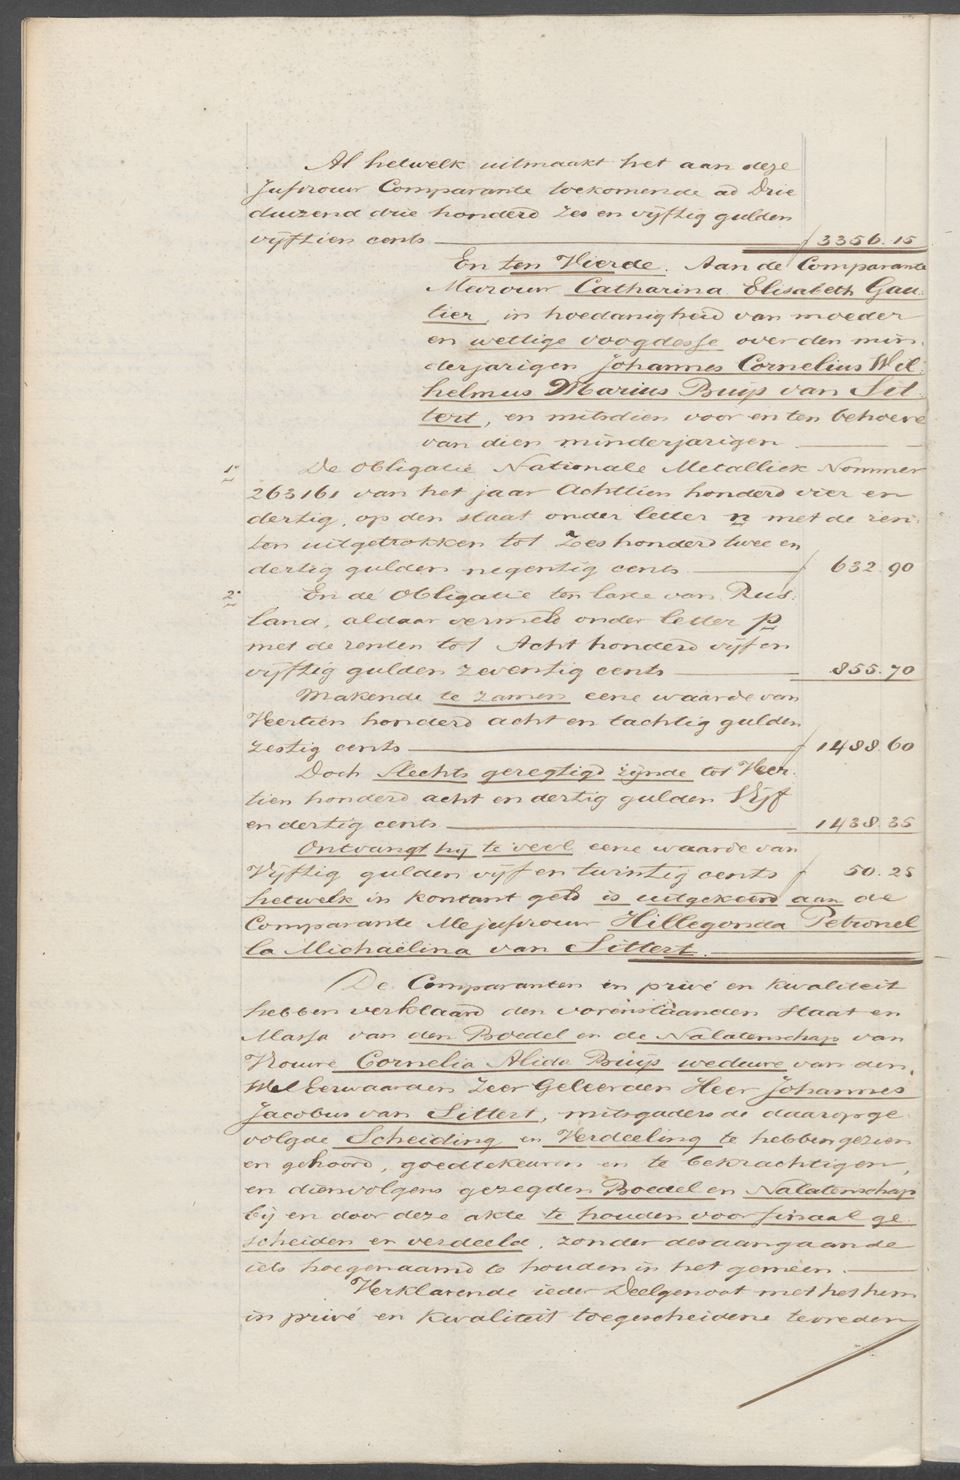 Al hetwelk uitmaakt het aan deze
Jufvrouw Comparante toekomende ad Drie
duizend drie honderd zes en vijftig gulden
vijftien cents ƒ 3356.15
En ten Vierde. Aan de Comparante
Mevrouw Catharina Elisabeth Gau-
tier, in hoedanigheid van moeder
en wettige voogdesse over den min-
derjarigen Johannes Cornelius Wil-
helmus Marius Buijs van Sit-
tert, en mitsdien voor en ten behoeve
van dien minderjarigen
1° De Obligatie Nationale Metalliek Nommer
263161 van het jaar Achttien honderd vier en
dertig, op den staat onder letter n met de ren-
ten uitgetrokken tot Zes honderd twee en
dertig gulden negentig cents ƒ 632.90
2° En de Obligatie ten laste van Rus-
land, aldaar vermeld onder letter p
met de renten tot Acht honderd vijf en
vijftig gulden zeventig cents 855.70
Makende te zamen eene waarde van
Veertien honderd acht en tachtig gulden
zestig cents ƒ 1488.60
Doch slechts geregtigd zijnde tot Veer-
tien honderd acht en dertig gulden Vijf
en dertig cents 1438.35
Ontvangt hij te veel eene waarde van
Vijftig gulden vijf en twintig cents ƒ 50.25
hetwelk in kontant geld is uitgekeerd aan de
Comparante Mejufvrouw Hillegonda Petronel
la Michaëlina van Sittert.
De Comparanten in privé en kwaliteit
hebben verklaard den vorenstaanden staat en
Massa van den Boedel en de Nalatenschap van
Vrouwe Cornelia Alida Buijs weduwe van den
Wel Eerwaarden Zeer Geleerden Heer Johannes
Jacobus van Sittert, mitsgaders de daarop ge-
volgde Scheiding en Verdeeling te hebben gezien
en gehoord, goedtekeuren en te bekrachtigen,
en dienvolgens gezegden Boedel en Nalatenschap
bij en door deze akte te houden voor finaal ge-
scheiden en verdeeld, zonder desaangaande
iets hoegenaamd te houden in het gemeen.
Verklarende ieder Deelgenoot met het hem
in privé en kwaliteit toegescheidene tevreden